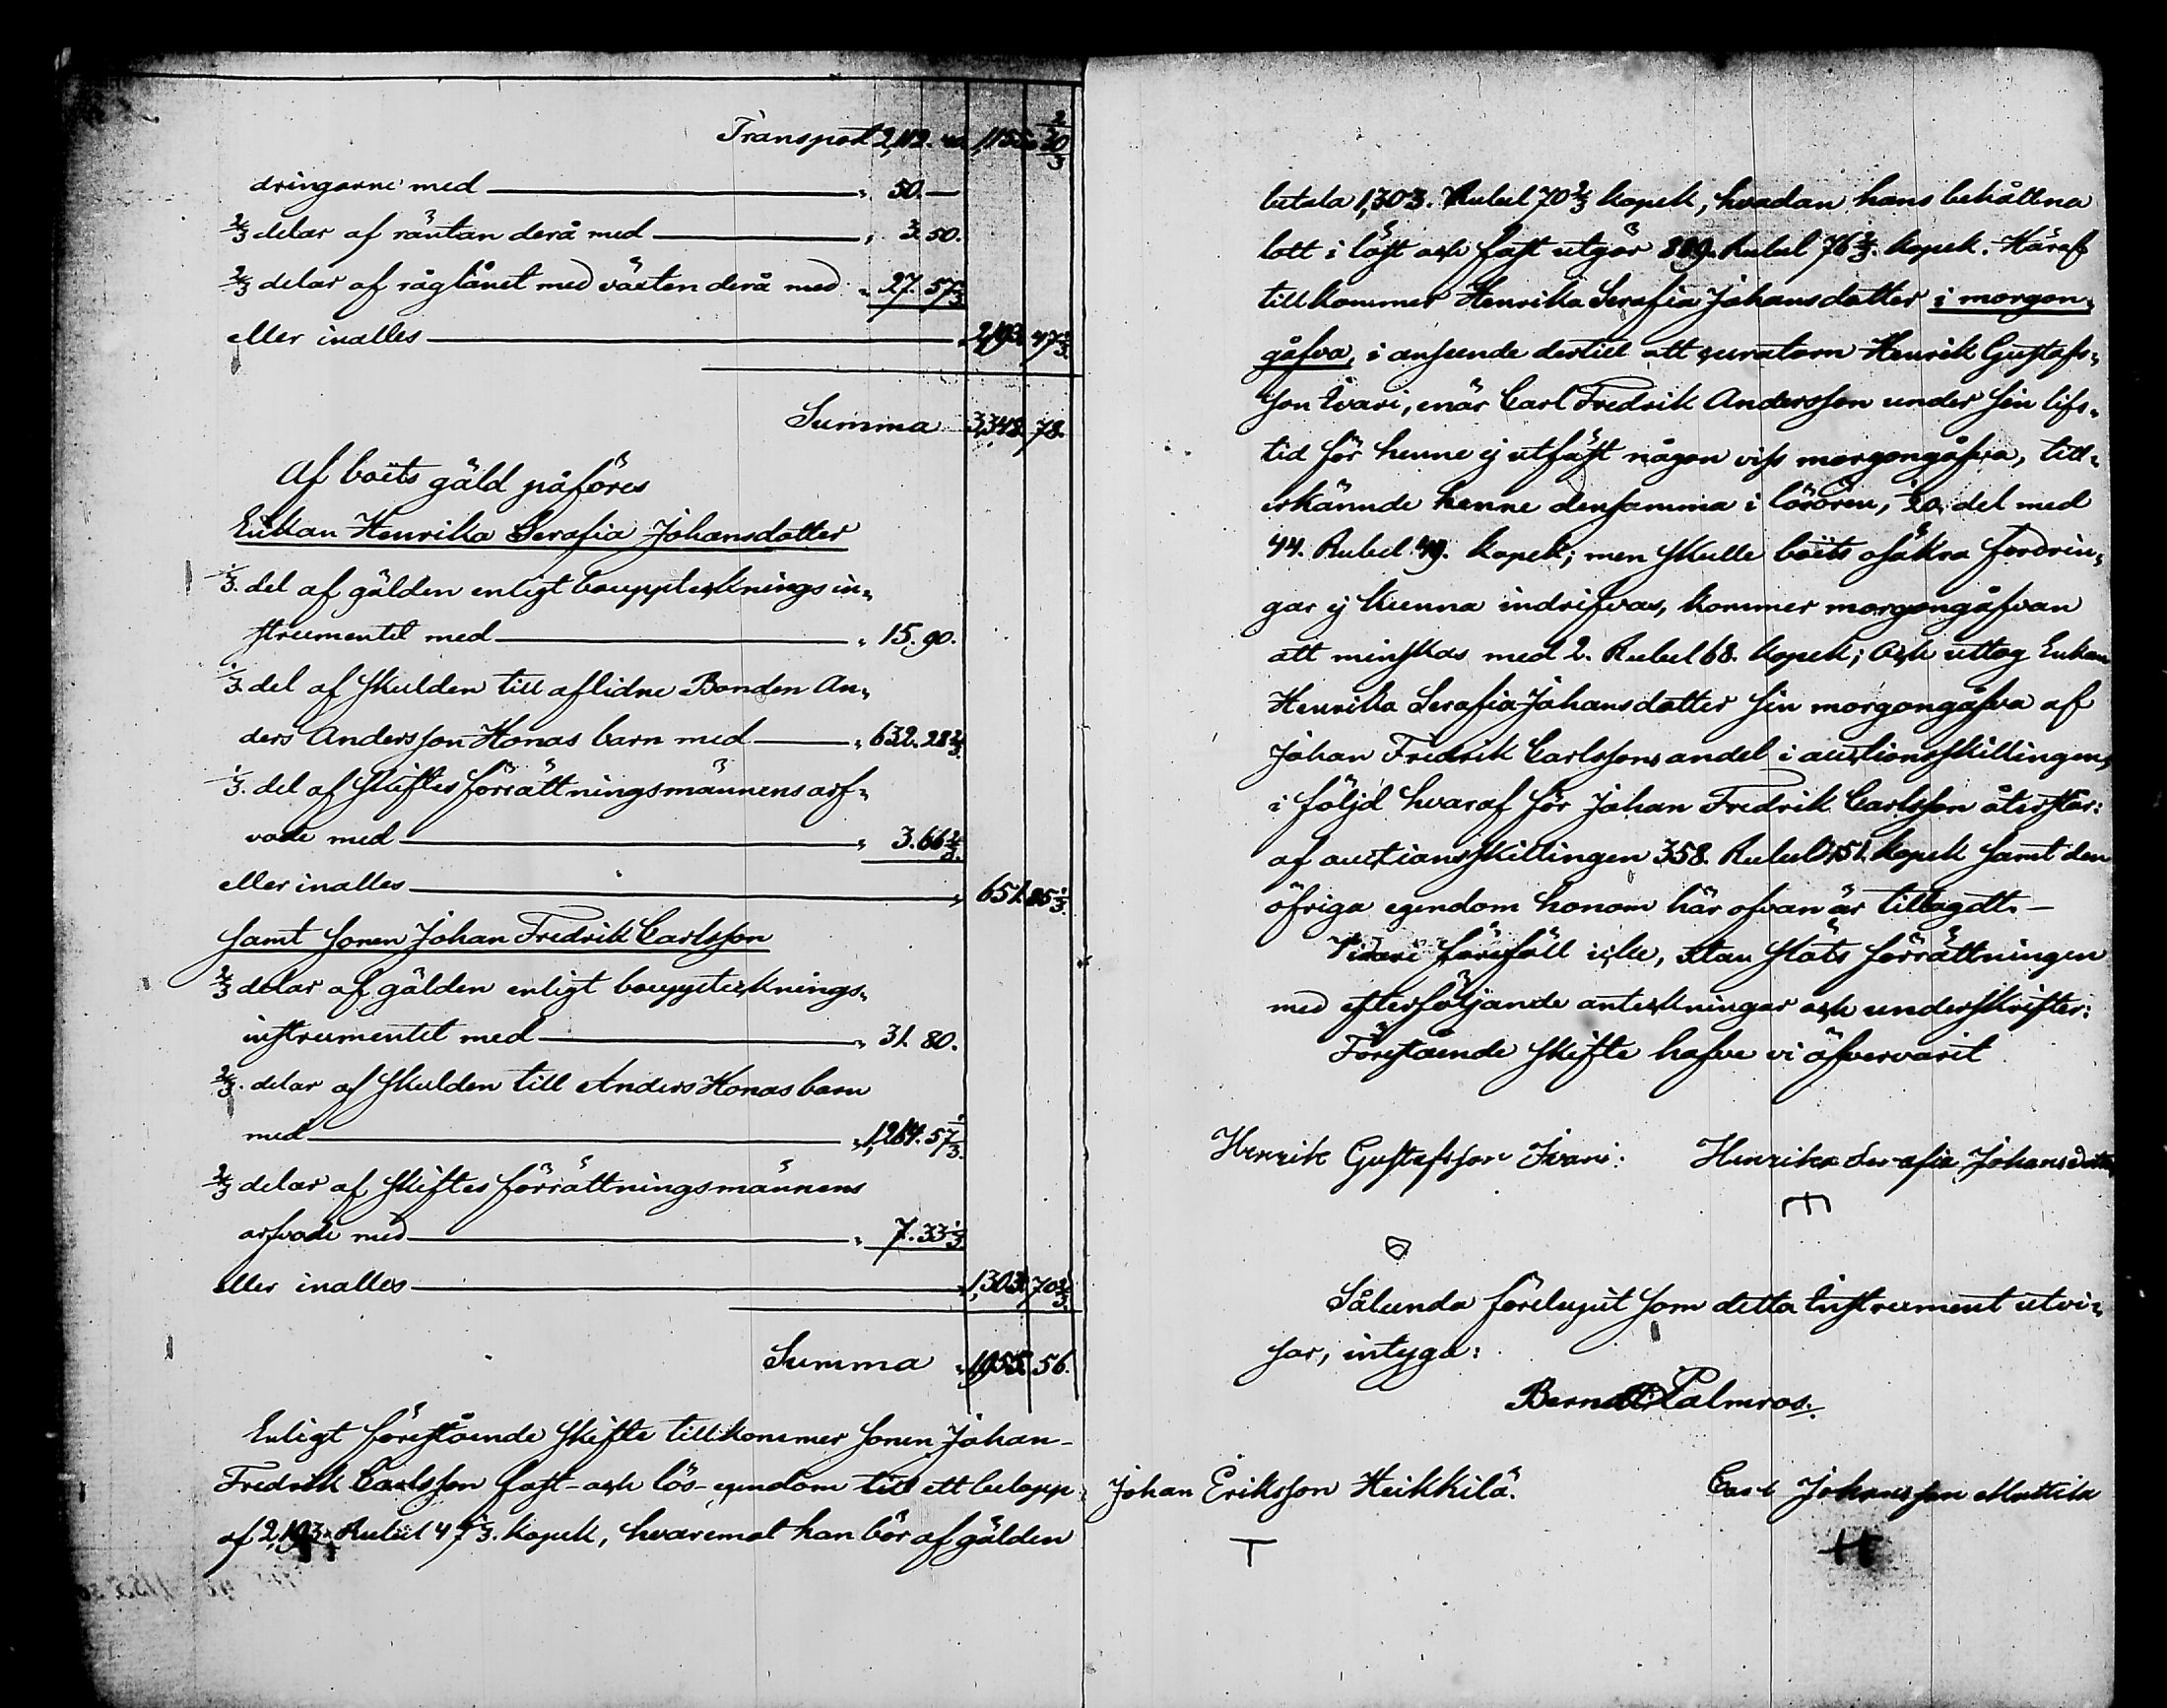 Transport 2,112. 40. 1,155. 30 2/3
dringarne med „ 50. —
2/3 delar af räntan derå med „ 3. 50.
2/3 delar af råglånet med växten derå med „ 27. 57 1/3
eller inalles „ 2,193. 47 1/3.
Summa 3,348. 78.
Af boëts gäld påföres
Enkan Henrika Serafia Johansdotter
1/3. del af gälden enligt bouppteknings in„
strumentet med „ 15. 90.
1/3. del af skulden till aflidne Bonden An„
ders Andersson Honas barn med „ 632. 28 2/3.
1/3. del af skiftesförrättningsmännens arf„
vode med „ 3. 66 2/3.
eller inalles „ 651. 85 1/3.
samt sonen Johan Fredrik Carlsson
2/3 delar af gälden enligt bouppteknings„
instrumentet med „ 31. 80.
2/3. delar af skulden till Anders Honas barn
med „ 1,264. 57 1/3.
2/3 delar af skiftesförrättningsmännens
arfvode med „ 7. 33 1/3.
eller inalles „ 1,303. 70 2/3.
Summa „ 1,955. 56.
Enligt förestående skifte tillkommer sonen Johan
Fredrik Carlsson fast- och lös- egendom till ett belopp
af 2,193. Rubel 47 1/3. kopek, hvaremot han bör af gälden
betala 1,303. Rubel 70 2/3 kopek, hvadan hans behållna
lott i löst och fast utgör 889. Rubel 76 2/3. kopek. Häraf
tillkommer Henrika Serafia Johansdotter i morgon„
gåfva, i anseende dertill att curatorn Henrik Gustafs„
son Ivari, enär Carl Fredrik Andersson under sin lifs„
tid för henne ej utfäst någon viss morgongåfva, till„
erkännde henne densamma i lösören, 1/20. del med
44. Rubel 49. kopek; men skulle boëts osäkra fordrin„
gar ej kunna indrifvas, kommer morgongåfvan
att minskas med 2. Rubel 68. kopek; Och uttog Enkan
Henrika Serafia Johansdotter sin morgongåfva af
Johan Fredrik Carlssons andel i auctionsskillingen,
i följd hvaraf för Johan Fredrik Carlsson återstår:
af auctionsskillingen 358. Rubel 51. kopek samt den
öfriga egendom honom här ofvan är tillagdt. —
Vidare förefoll icke, utan slöts förrättningen
med efterföljande anteckningar och underskrifter:
Förestående skifte hafve vi öfvervarit
Henrik Gustafsson Ivari: Henrika Serafia Johansdotter
Sålunda föreluput som detta Instrument utvi„
sar, intyga:
Berndt Palmros.
Johan Eriksson Heikkilä. Carl Johansson Mattila